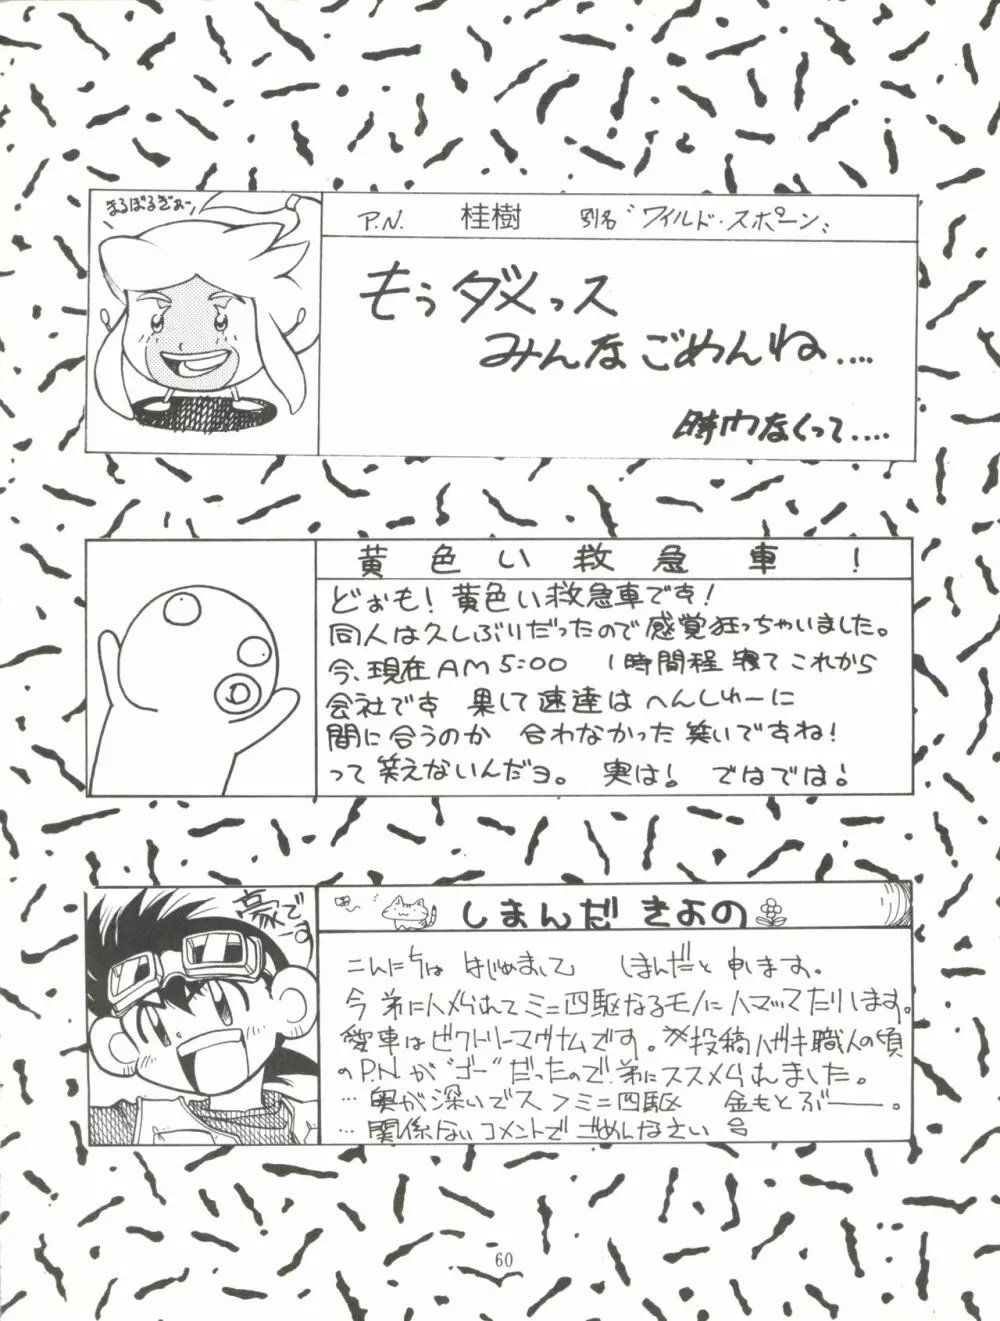 まるぼるぎぁー
P.N. 桂樹 別名〝ワイルド・スポーン〟
もぅダメっス
みんなごめんね‥‥
時間なくって‥‥
黄色い救急車!
どぉも!黄色い救急車です!
同人は久しぶりだったので感覚狂っちゃいました。
今、現在AM5:00 1時間程寝てこれから
会社です 果して速達はへんしゅーに
間に合うのか 合わなかった笑いですね!
って笑えないんだョ。 実は! ではでは!
豪です
しまんだきよの
こんにちは はじめまして しまんだと申します。
今弟にハメられてミニ四駆なるモノにハマッてたりします。
愛車はビクトリーマグナムです。※投稿ハガキ職人の頃
のP.N.が〝ゴー〟だったので弟にススメられました。
…奥が深いでスァミニ四駆 金もとぶ――。
…関係ないコメントでごめんなさい
60